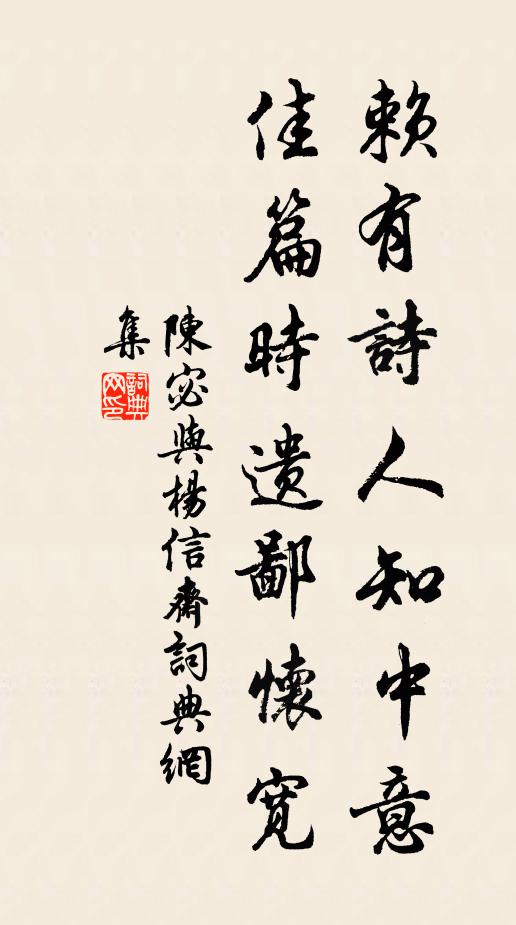 賴有詩人知中意
佳篇時遺鄙懷寬
陳宓與楊信齋詞典網
集
詞典
网印